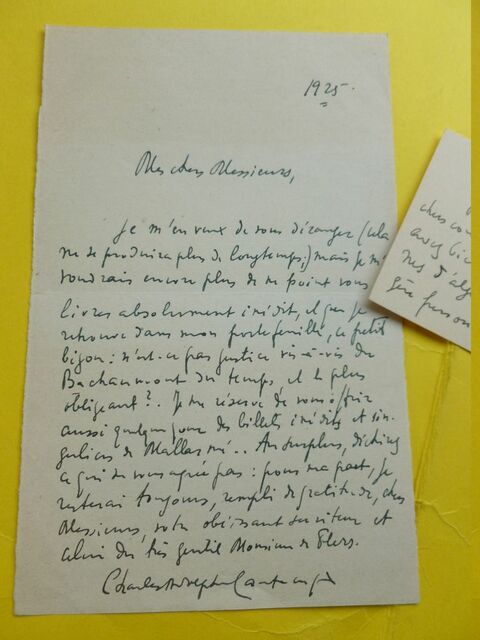 1925.
Mes chers Messieurs,
Je m'en veux de vous déranger (cela
ne se produira plus de longtemps;) mais je m'en
voudrais encore plus de ne point vous
livrer absolument inédit, et que je
retrouve dans mon portefeuille, ce petit
bijou : n'est-ce pas justice vis-à-vis du
Bachaumont du temps, et le plus
obligeant ?. Je me réserve de vous offrir
aussi quelque jour des billets inédits et sin-
guliers de Mallarmé .. Au surplus,
ce qui ne vous agrée pas : pour ma part, je
resterai toujours, rempli de gratitude, chers
Messieurs, votre obéissant serviteur et
celui du très gentil Monsieur de Flers.
Charles Adolphe Cantacuzène
chers
avec
nes d'al
gère person